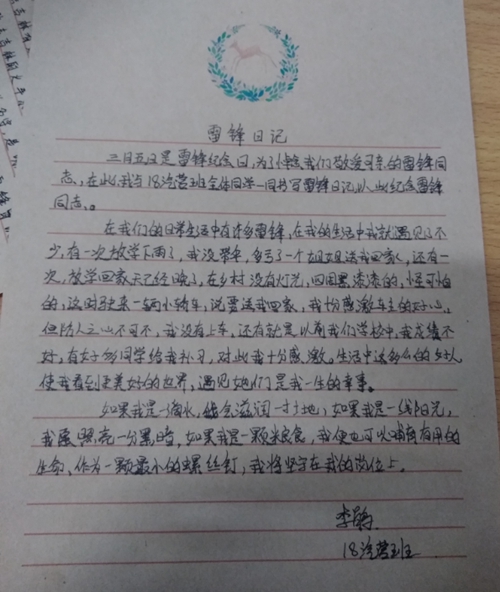 雷锋日记
三月五日是雷锋纪念日,为了悼念我们敬爱可亲的雷锋同
志,在此我与18汽营班全体同学一同书写雷锋日记以此纪念雷锋
同志。
在我们的日常生活中有许多雷锋,在我的生活中我就遇见了不
少,有一次放学下雨了,我没带伞,多亏了一个姐姐送我回家,还有一
次,放学回家天已经晚了,在乡村没有灯光,四周黑漆漆的,怪可怕
的,这时驶来一辆小轿车,说要送我回家,我十分感激车主的好心,
但防人之心不可不,我没有上车,还有就是以前我们学校中,我成绩不
好,有好多同学给我补习,对此我十分感激。生活中这么多的好人
使我看到更美好的世界,遇见她们是我一生的幸事。
如果我是一滴水,会滋润一寸土地;如果我是一线阳光,
我照亮一分黑暗,如果我是一颗粮食,我便也可以哺育有用的
生命、作为一颗最小的螺丝钉,我将坚守在我的岗位上。
李
18汽营班